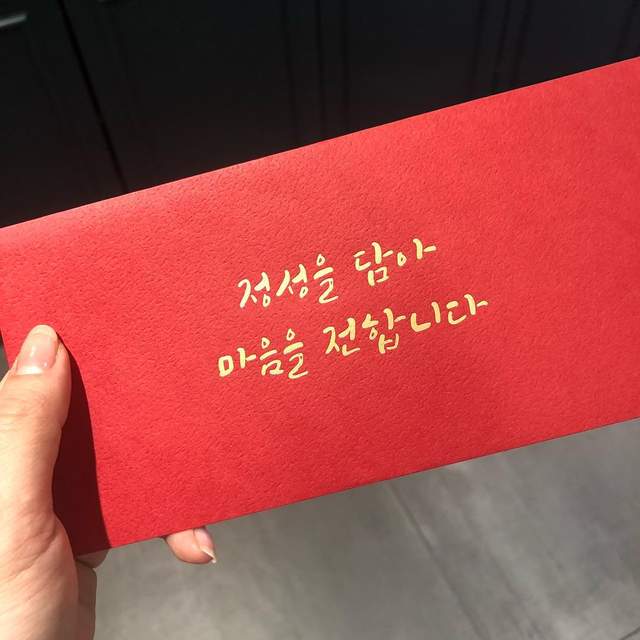 정성을 담아
마음을 전합니다